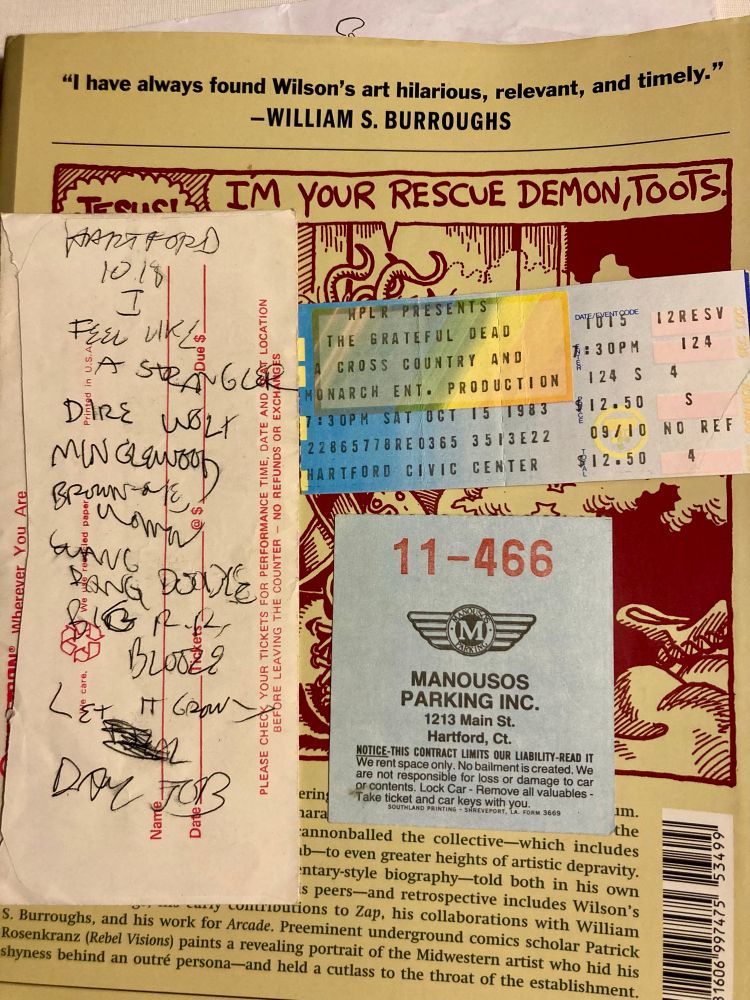 “I have always found Wilson’s art hilarious, relevant, and timely.”
—WILLIAM S. BURROUGHS
JESUS!
I'M YOUR RESCUE DEMON, TOOTS.
HARTFORD
10.18
I
FEEL LIKE
A STRANGER
DIRE WOLF
MINGLEWOOD
BROWN-EYED
WOMAN
WANG
DANG DOODLE
BIG R.R.
BLOOES
LET IT GROW →
DAY JOB
Printed in U.S.A.
We care.
We use recycled paper
Wherever You Are
Name
Date
Tickets
@ $
Due $
PLEASE CHECK YOUR TICKETS FOR PERFORMANCE TIME, DATE AND SEAT LOCATION
BEFORE LEAVING THE COUNTER – NO REFUNDS OR EXCHANGES
WPLR PRESENTS
THE GRATEFUL DEAD
A CROSS COUNTRY AND
MONARCH ENT. PRODUCTION
7:30PM SAT OCT 15 1983
22865778RE0365 3513E22
HARTFORD CIVIC CENTER
DATE/EVENT CODE
1015 12RESV
7:30PM 124
124 S 4
12.50 S
09/10 NO REF
12.50 4
11-466
MANOUSOS PARKING
M
MANOUSOS
PARKING INC.
1213 Main St.
Hartford, Ct.
NOTICE-THIS CONTRACT LIMITS OUR LIABILITY-READ IT
We rent space only. No bailment is created. We
are not responsible for loss or damage to car
or contents. Lock Car - Remove all valuables -
Take ticket and car keys with you.
SOUTHLAND PRINTING - SHREVEPORT, LA. FORM 3669
the
cannonballed the collective—which includes
to even greater heights of artistic depravity.
biography—told both in his own
peers—and retrospective includes Wilson’s
early contributions to Zap, his collaborations with William
S. Burroughs, and his work for Arcade. Preeminent underground comics scholar Patrick
Rosenkranz (Rebel Visions) paints a revealing portrait of the Midwestern artist who hid his
shyness behind an outré persona—and held a cutlass to the throat of the establishment.
81606 997475 53499